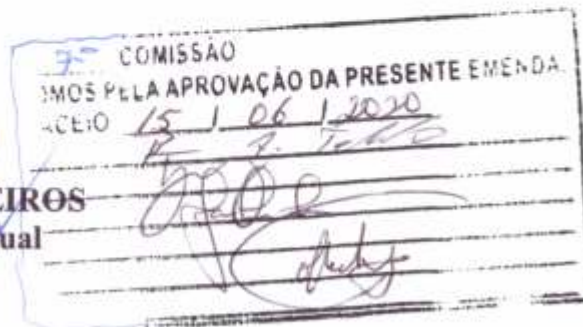 7ª COMISSÃO
MOS PELA APROVAÇÃO DA PRESENTE EMENDA
ACEIO 15 / 06 / 2020
EIROS
ual